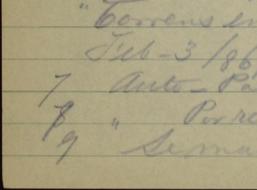 " Correns en
Feb - 3/86
7 Auto - Pa
8 " Por re
9 Se ma